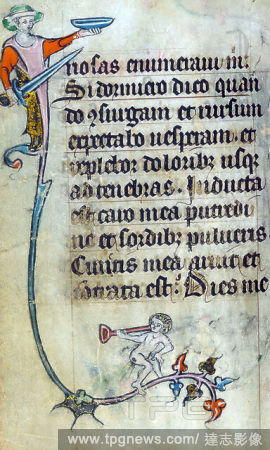 riosas enumeraui m.
Si dormiero dico quan
do ꝯsurgam et rursum
expectabo uesperam. et
replebor doloribꝫ usqꝫ
ad tenebras. Induta
est caro mea putredi
ne et sordibꝫ pulueris
Cutis mea aruit et
ꝯtracta est. Dies me
TPG
www.tpgnews.com / 達志影像